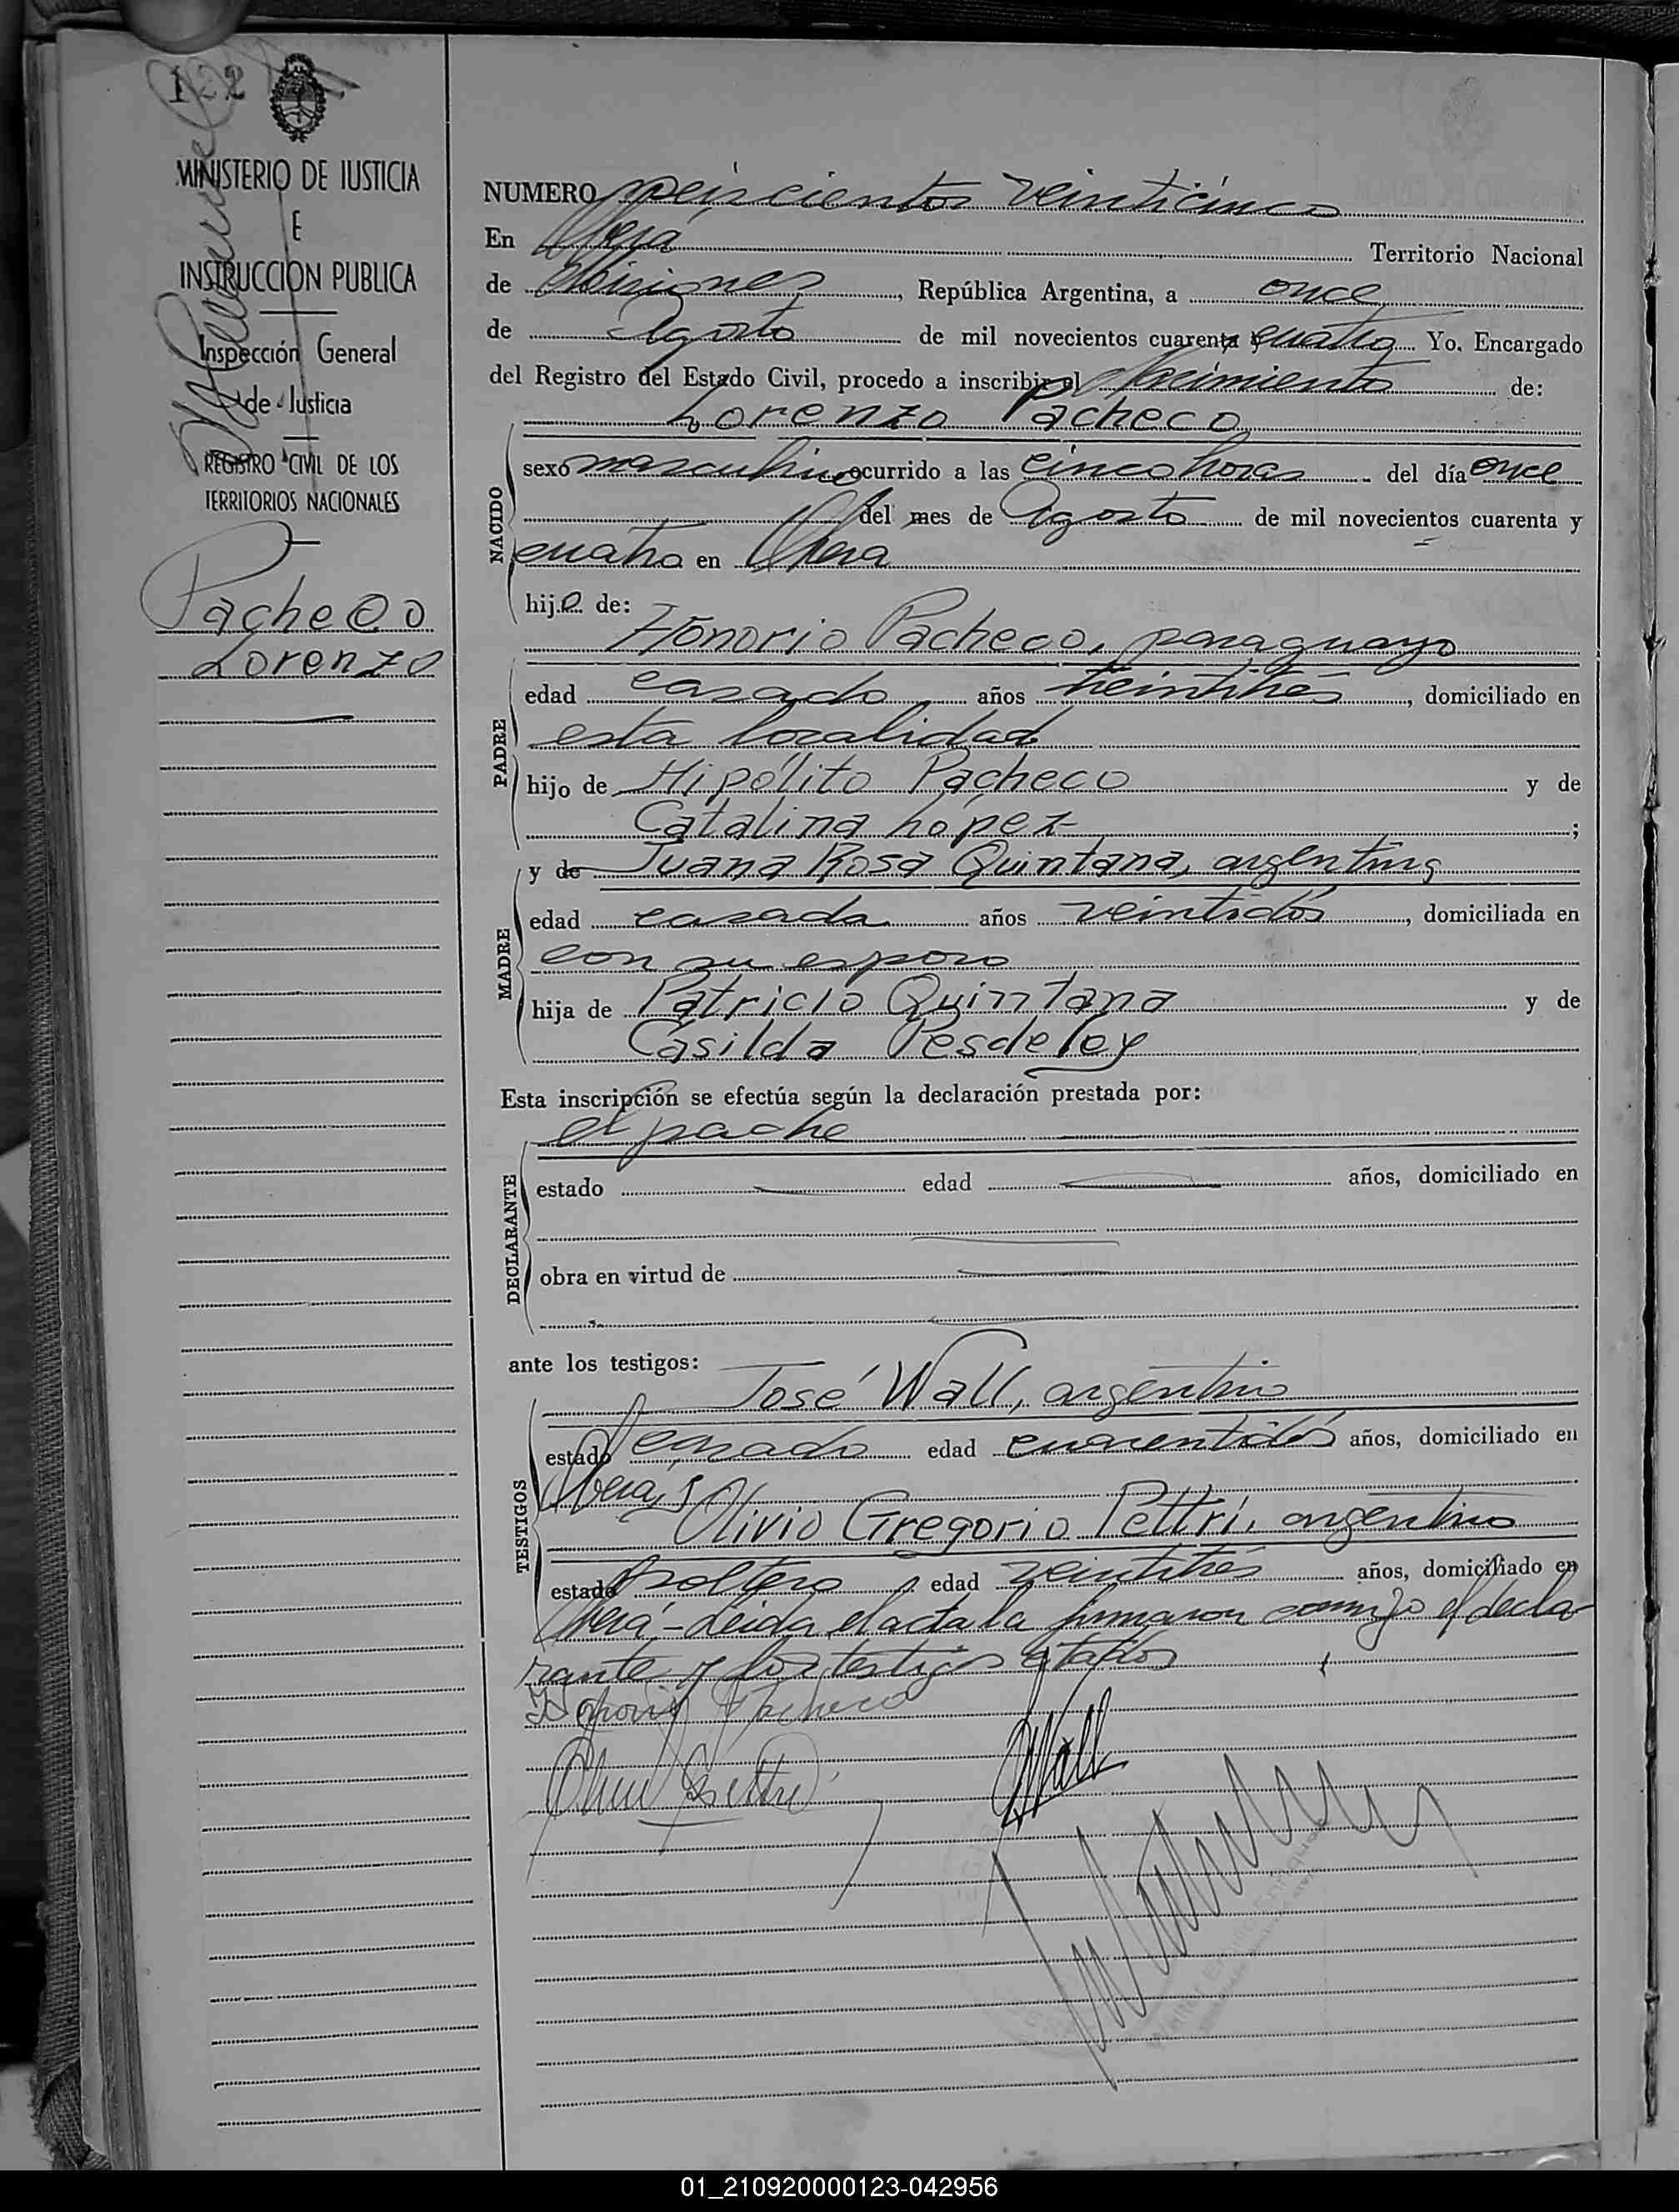 122
MINISTERIO DE JUSTICIA
E
INSTRUCCION PUBLICA
Inspección General
de Justicia
REGISTRO CIVIL DE LOS
TERRITORIOS NACIONALES
Pacheco
Lorenzo
NUMERO seiscientos veinticinco
En Oberá Territorio Nacional
de Misiones, República Argentina, a once
de Agosto de mil novecientos cuarenta y cuatro Yo, Encargado
del Registro del Estado Civil, procedo a inscribir el Nacimiento de:
Lorenzo Pacheco
NACIDO
sexo masculino ocurrido a las cinco horas del día once
del mes de Agosto de mil novecientos cuarenta y
cuatro en Oberá
hijo de:
Honorio Pacheco, paraguayo
PADRE
edad casado años treintitrés, domiciliado en
esta localidad
hijo de Hipólito Pacheco y de
Catalina López ;
MADRE
y de Juana Rosa Quintana, argentina
edad casada años veintidós, domiciliada en
con su esposo
hija de Patricio Quintana y de
Casilda
Esta inscripción se efectúa según la declaración prestada por:
DECLARANTE
el padre
estado edad años, domiciliado en
obra en virtud de
ante los testigos:
TESTIGOS
José Wall, argentino
estado casado edad cuarentidós años, domiciliado en
Oberá y
Olivio Gregorio Pettri, argentino
estado soltero edad veintitrés años, domiciliado en
Oberá - Leida el acta la firmaron conmigo el decla-
rante y los testigos citados
Honorio Pacheco
Wall
01_210920000123-042956